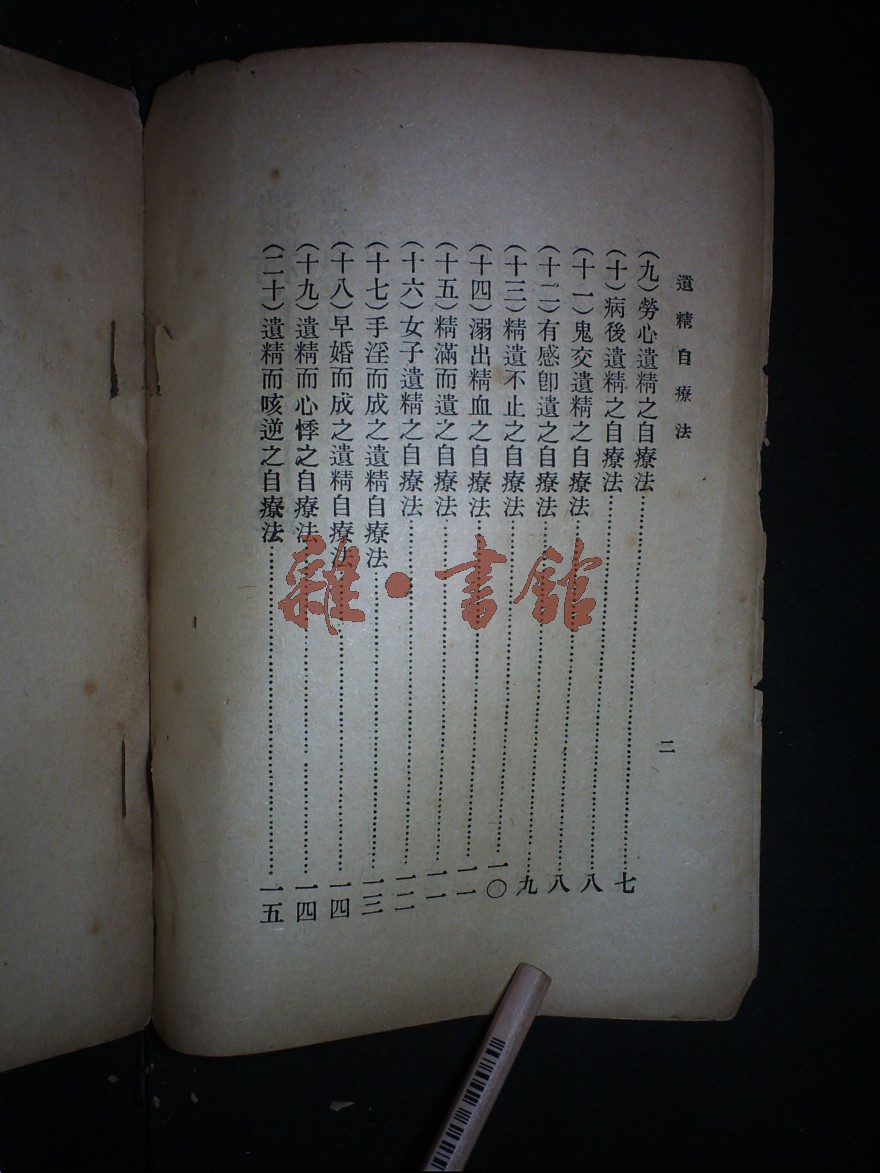 遺精自療法
二
(九)勞心遺精之自療法……七
(十)病後遺精之自療法……八
(十一)鬼交遺精之自療法……八
(十二)有感卽遺之自療法……九
(十三)精遺不止之自療法……一〇
(十四)溺出精血之自療法……一一
(十五)精滿而遺之自療法……一一
(十六)女子遺精之自療法……一二
(十七)手淫而成之遺精自療法……一三
(十八)早婚而成之遺精自療法……一四
(十九)遺精而心悸之自療法……一四
(二十)遺精而咳逆之自療法……一五
雜·書館